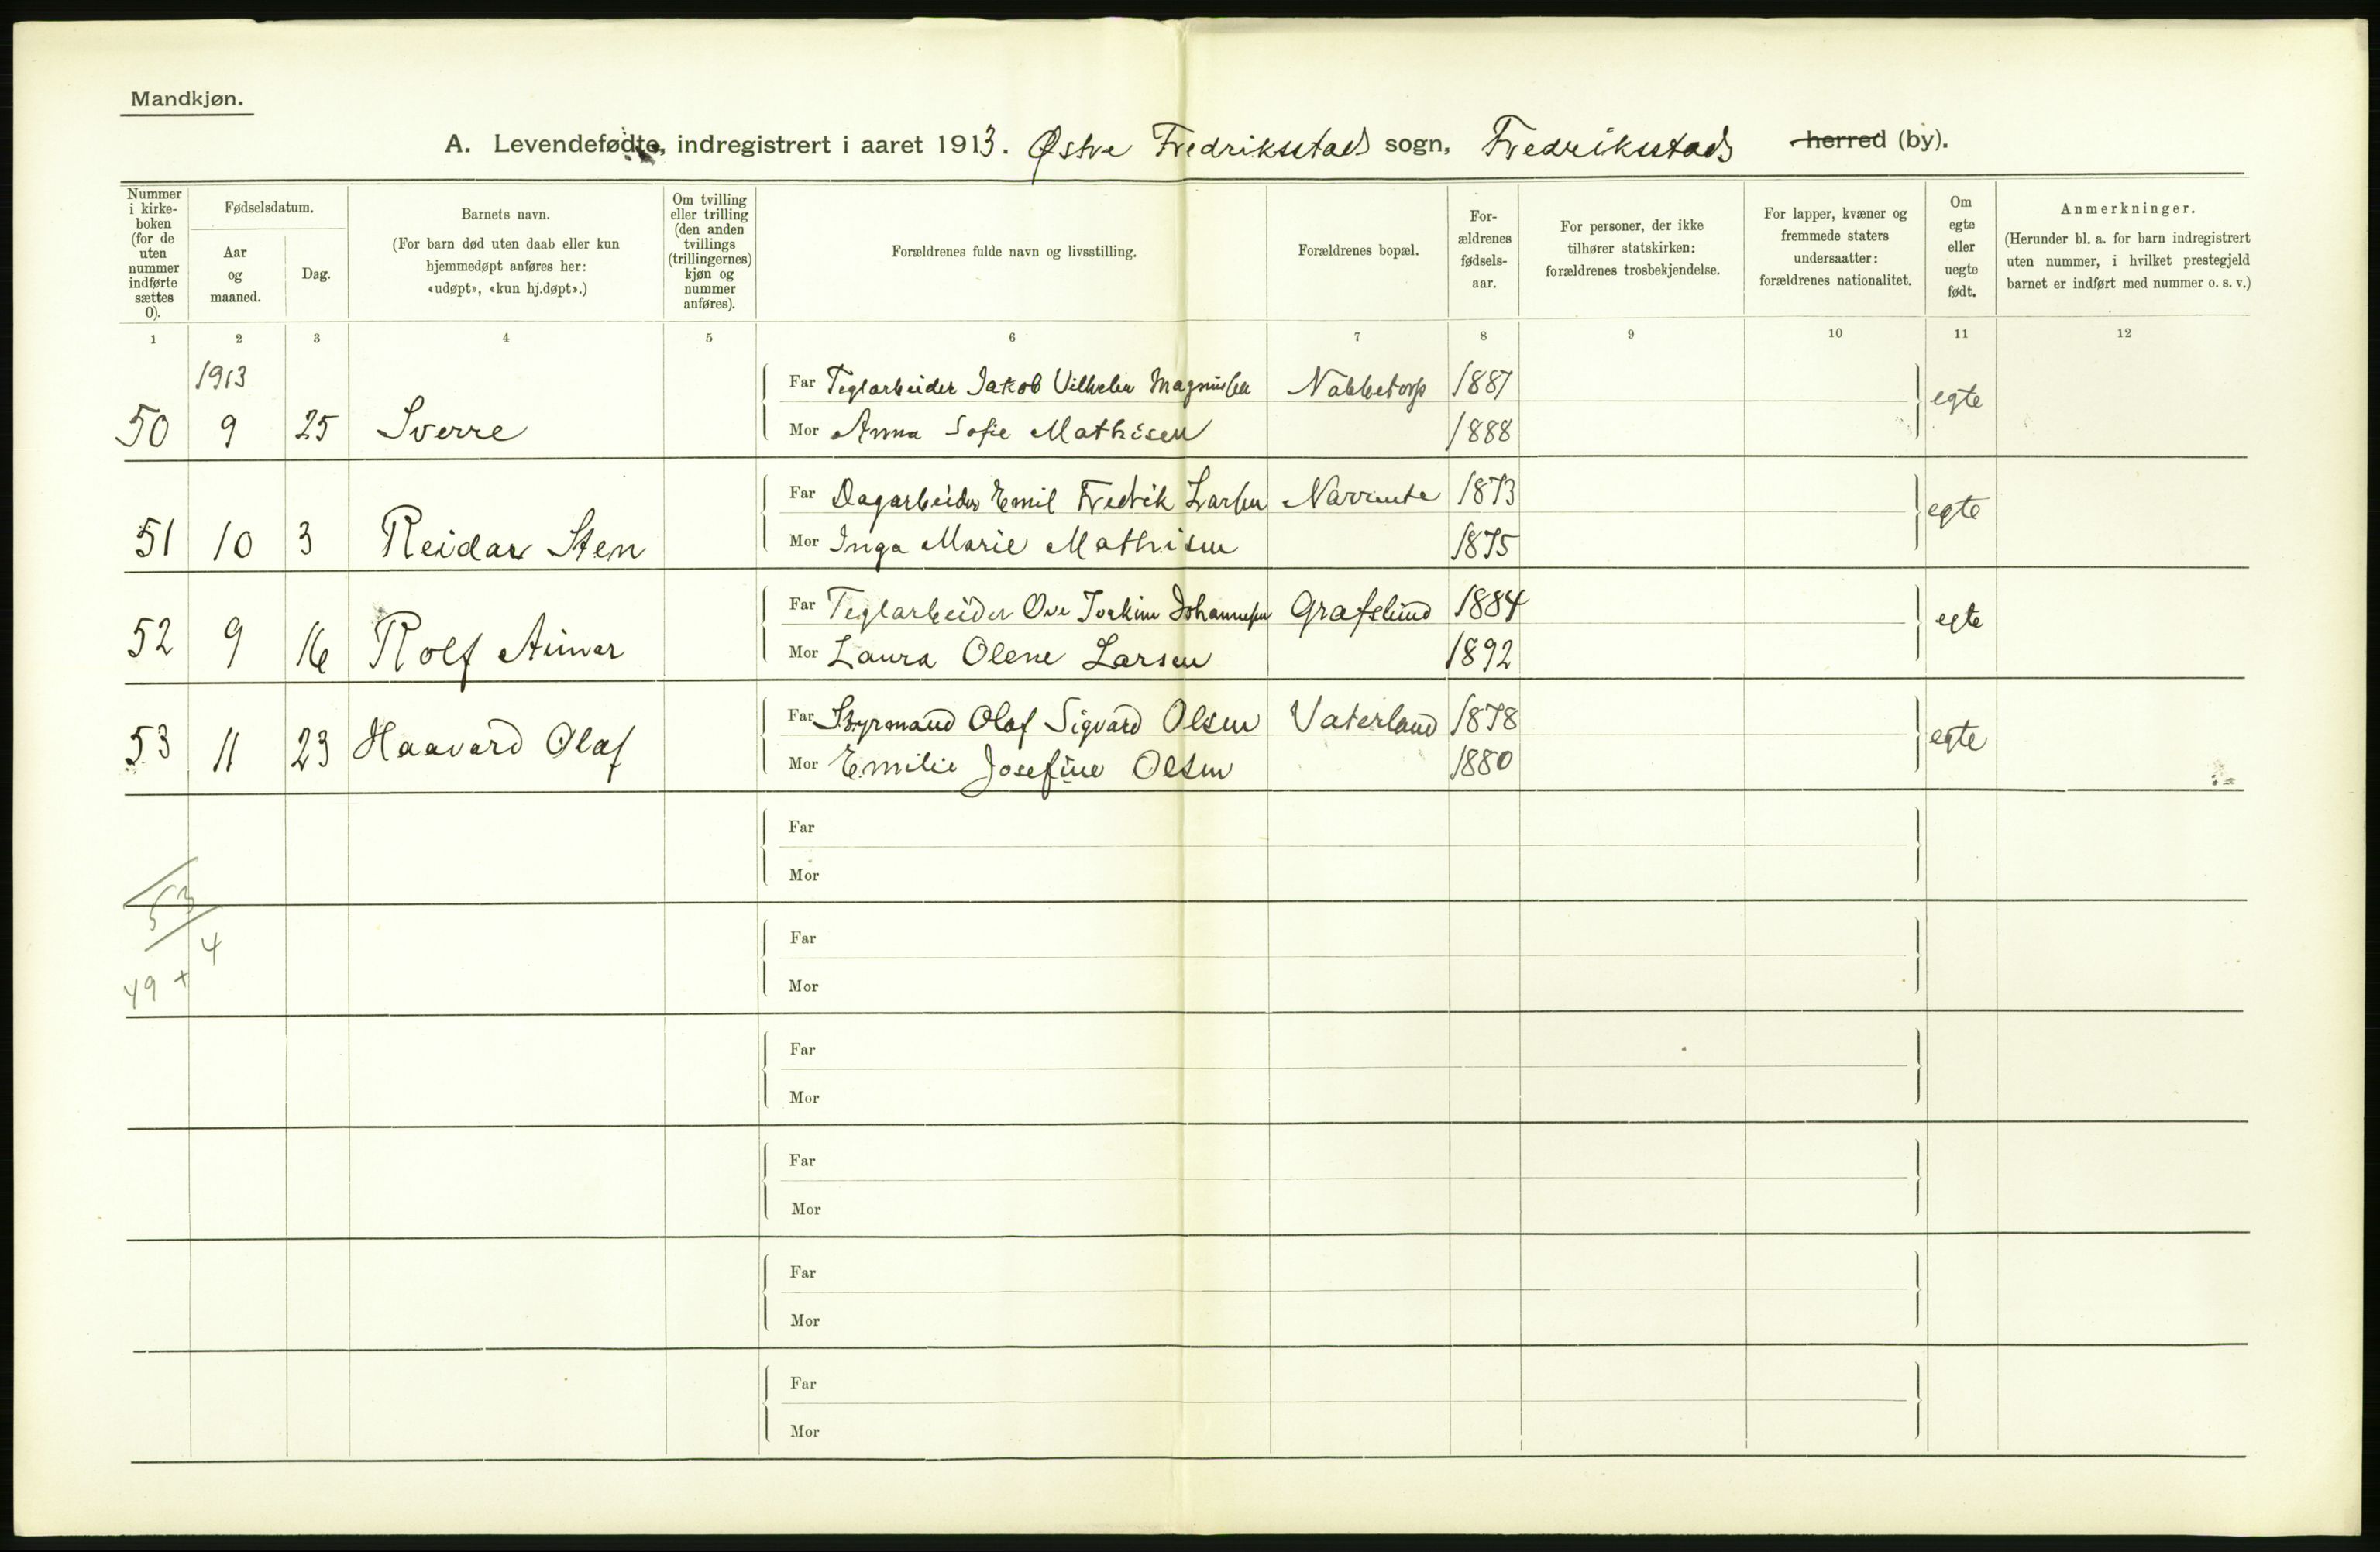 Mandkjøn.
A. Levendefødte, indregistrert i aaret 1913. Østre Fredriksstads sogn, Fredriksstads herred (by).
Nummer i kirke- boken (for de uten nummer indførte sættes 0).
Fødselsdatum.
Aar og maaned.
Dag.
Barnets navn.
(For barn død uten daab eller kun hjemmedøpt anføres her: «udøpt», «kun hj.døpt».)
Om tvilling eller trilling (den anden tvillings (trillingernes) kjøn og nummer anføres).
Forældrenes fulde navn og livsstilling.
Forældrenes bopæl.
For- ældrenes fødsels- aar.
For personer, der ikke tilhører statskirken: forældrenes trosbekjendelse.
For lapper, kvæner og fremmede staters undersaatter: forældrenes nationalitet.
Om egte eller uegte født.
Anmerkninger.
(Herunder bl. a. for barn indregistrert uten nummer, i hvilket prestegjeld barnet er indført med nummer o. s. v.)
1 2 3 4 5 6 7 8 9 10 11 12
1913
Far Teglarbeider Jakob Vilhelm Magnussen Nabbetorp 1887
50 9 25 Sverre egte
Mor Anna Sofie Mathisen 1888
Far Dagarbeider Emil Fredrik Larsen 1873
51 10 3 Reidar Sten egte
Mor Inga Marie Mathisen 1875
Far Teglarbeider Ove Joakim Johannesen Grafslund 1884
52 9 16 Rolf egte
Mor Laura Olene Larsen 1892
Far Styrmand Olaf Sigvard Olsen Vaterland 1878
53 11 23 Haavard Olaf egte
Mor Emilie Josefine Olsen 1880
Far
Mor
53
4
Far
49 +
Mor
Far
Mor
Far
Mor
Far
Mor
Far
Mor